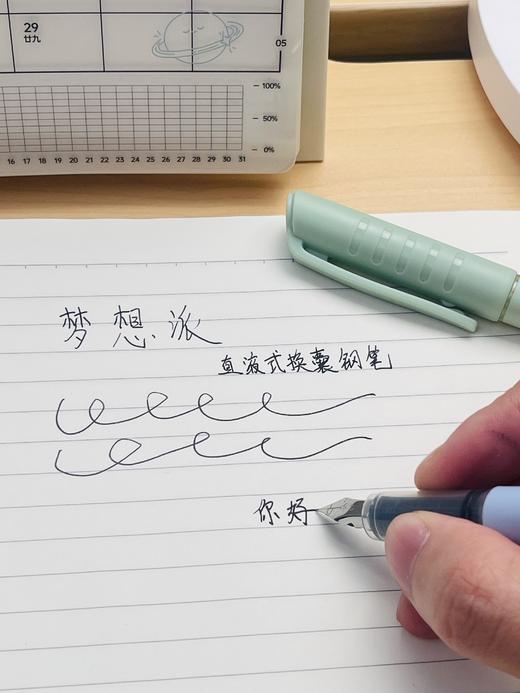 29
廿九
05
100%
50%
0%
16 17 18 19 20 21 22 23 24 25 26 27 28 29 30 31
梦想派
直液式换囊钢笔
你好